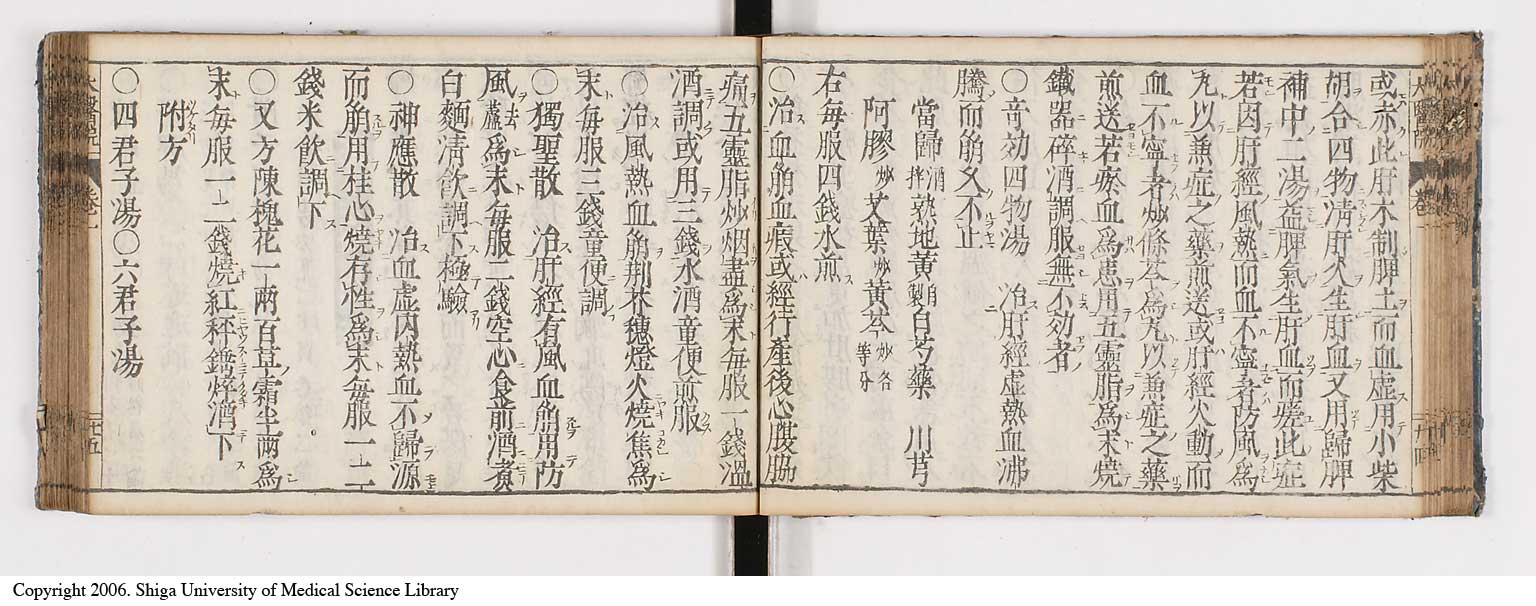 或赤此肝木制脾土而血虚用小柴
胡合四物淸肝火生肝血又用歸脾
補中二湯益脾氣生肝血而瘥此症
若因肝經風熱而血不寧者防風爲
丸以兼症之藥煎送或肝經火動而
血不寧者炒條芩爲丸以兼症之藥
煎送若瘀血爲患用五靈脂爲末燒
鐵器碎酒調服無不効者
〇竒効四物湯 治肝經虚熱血沸
騰而崩久不止
當歸酒拌熟地黄自製白芍藥 川芎
阿膠炒艾葉炒黄芩炒各等分
右毎服四錢水煎
〇治血崩血瘕或經行産後心腹脇
痛五靈脂炒烟盡爲末毎服一錢溫
酒調或用三錢水酒童便煎服
〇治風熱血崩荆芥穗燈火燒焦爲
末毎服三錢童便調
〇獨聖散 治肝經有風血崩用防
風去蘆爲末毎服二錢空心食前酒煮
白麵淸飮調下極驗
〇神應散 治血虚内熱血不歸源
而崩用桂心燒存性爲末毎服一二
錢米飮調下
〇又方陳槐花一兩百草霜半兩爲
末毎服一二錢燒紅秤錘焠酒下
附方
〇四君子湯〇六君子湯
Copyright 2006. Shiga University of Medical Science Library